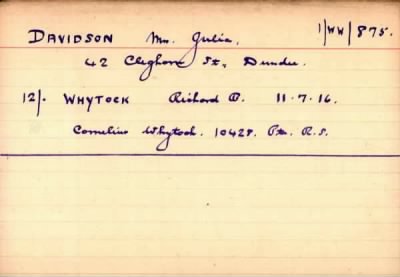 DAVIDSON Mrs. Julia. 1/WW/875.
42 Cleghorn St., Dundee.
12/. WHYTOCK Richard D. 11.7.16.
Cornelius Whytock. 10428. Pte. R.S.